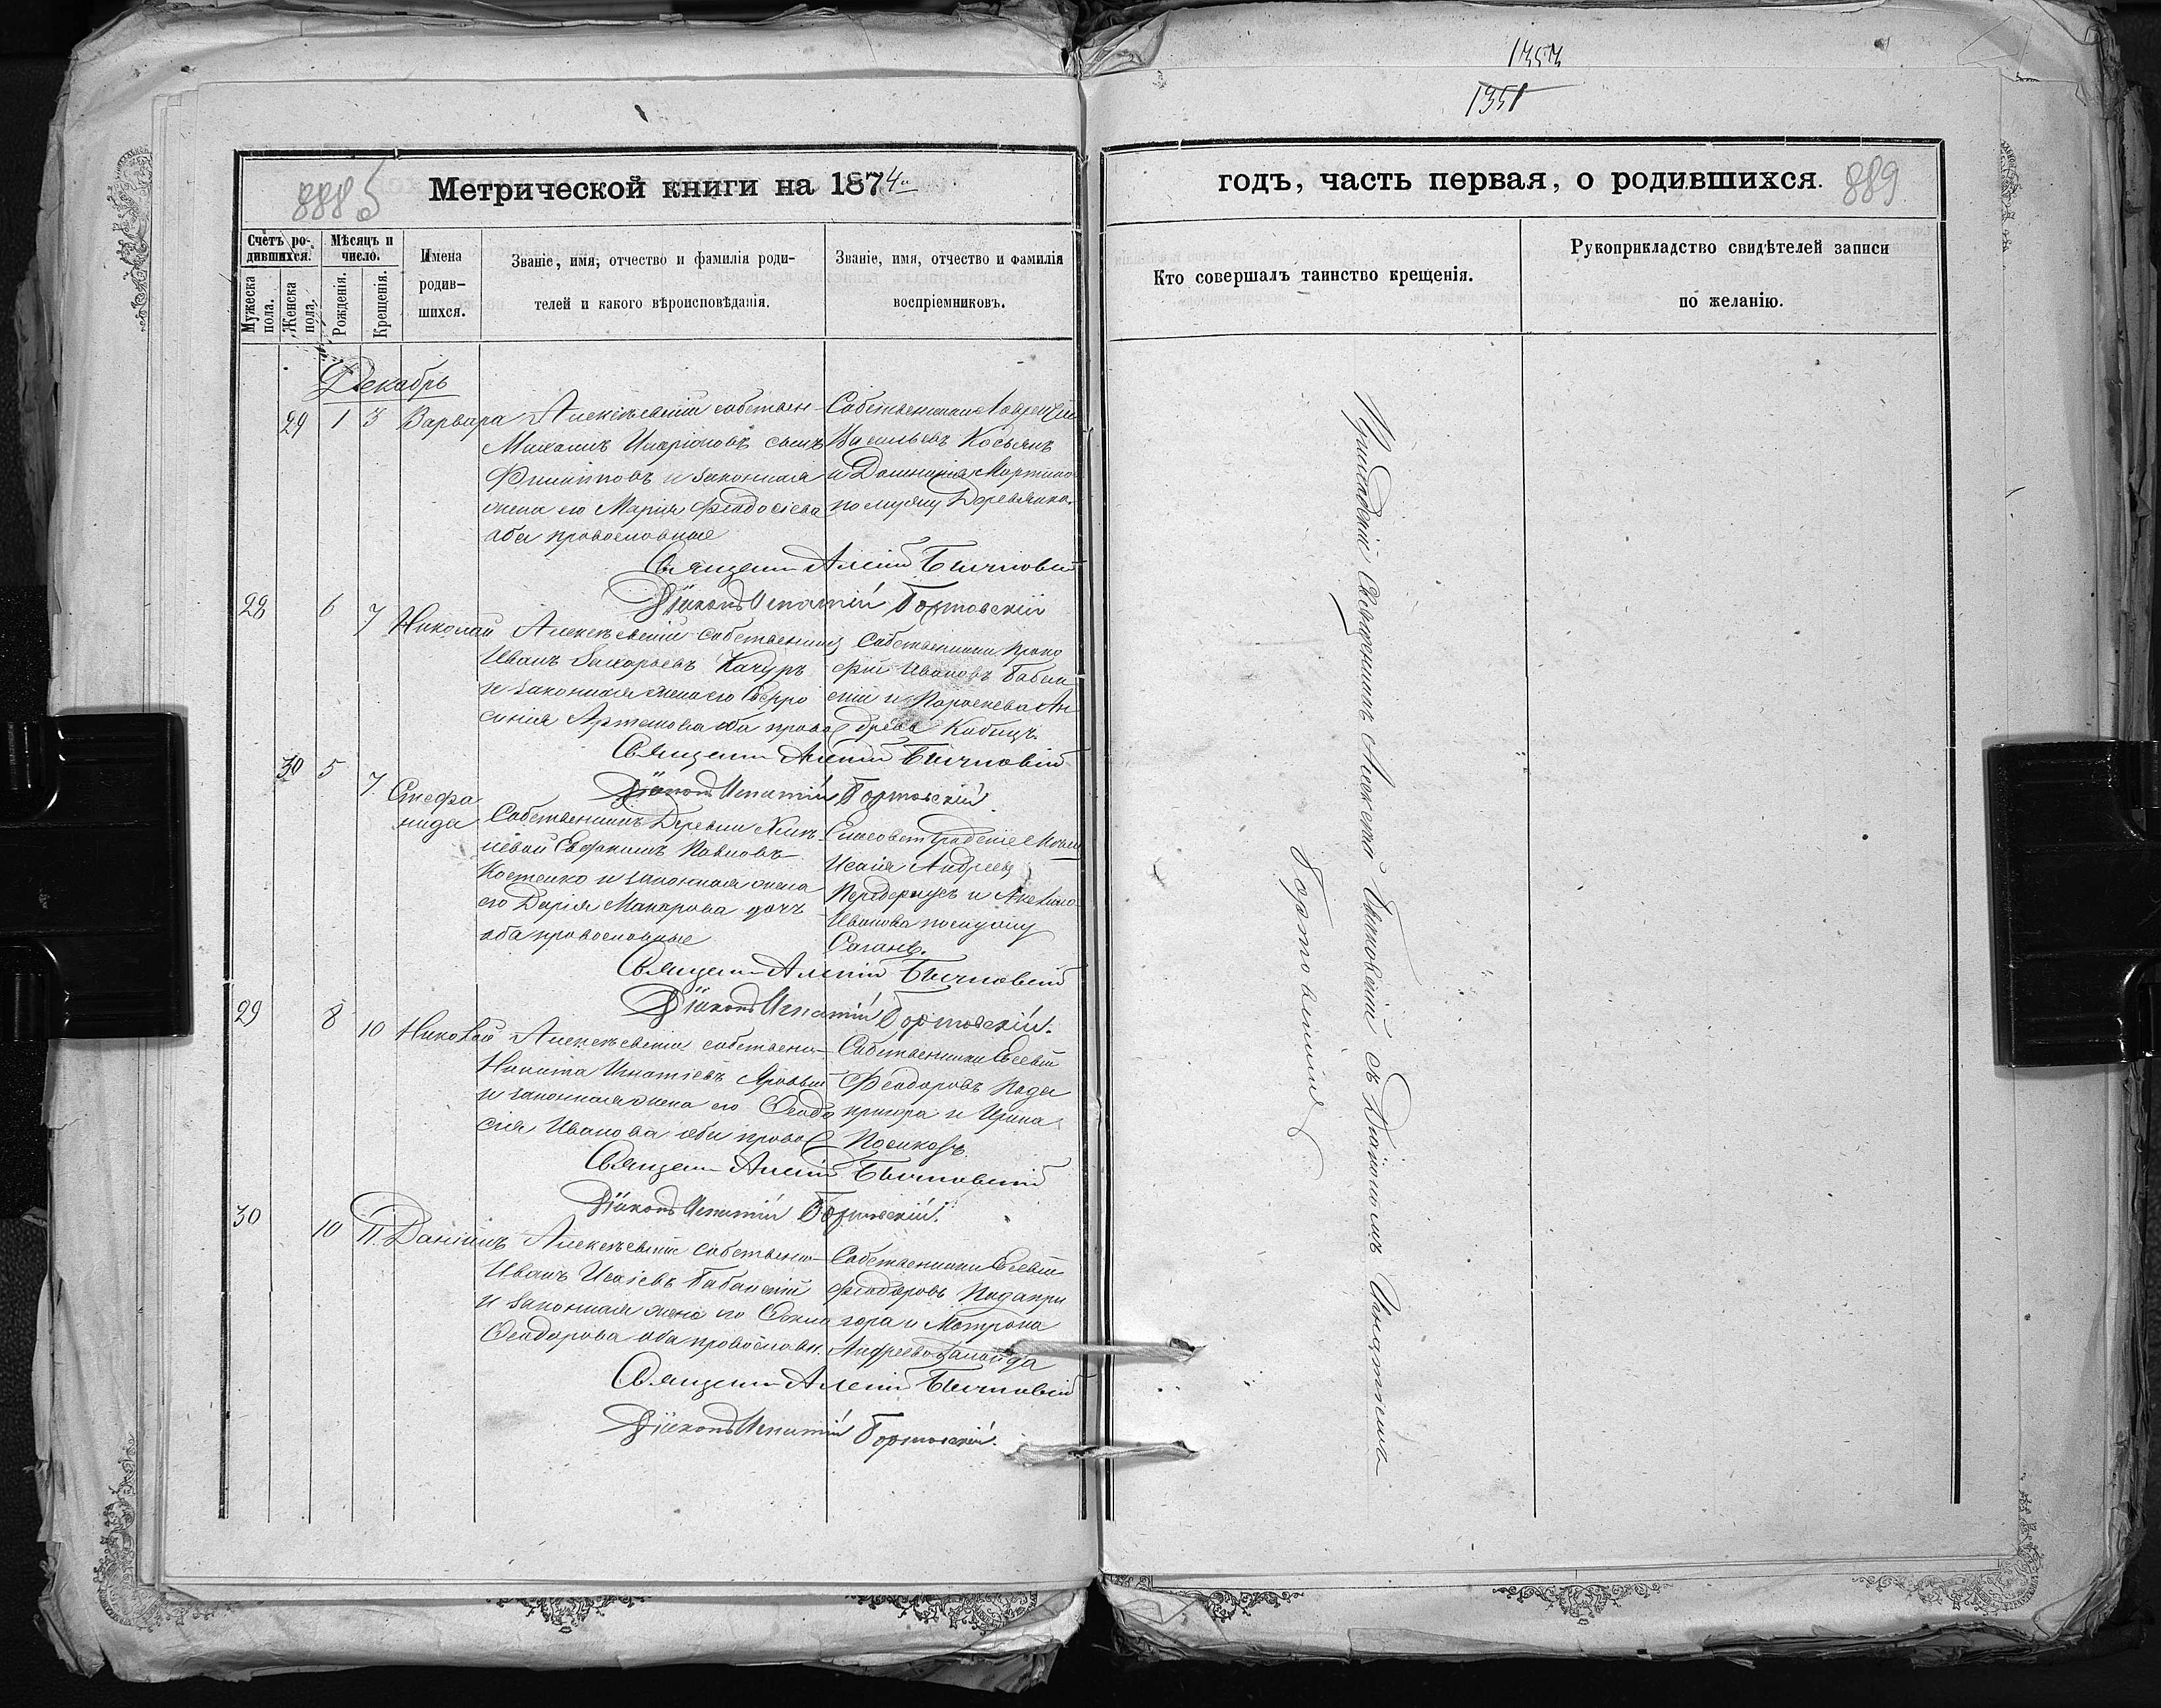 1353
1351
888 об
Метрической книги на 1874й
годъ, часть первая, о родившихся.
889
Счетъ ро-
дившихся.
Мужеска
пола.
Женска
пола.
Мѣсяцъ и
число.
Рожденія.
Крещенія.
Имена
родив-
шихся.
Званіе, имя, отчество и фамилія роди-
телей и какого вѣроисповѣданія.
Званіе, имя, отчество и фамилія
воспріемниковъ.
Кто совершалъ таинство крещенія.
Рукоприкладство свидѣтелей записи
по желанію.
Декабрь
29 1 3 Варвара
Алексѣевскій собствен-
Михаилъ сынъ
Филиповъ и законная
жена его Марія Феодосіева
оба православные
Собственники
Васильевъ Косьянъ
и Домникія Мартино
по мужу Деревянко.
Священ Алексій Бычковскій
Діаконъ Игнатій Бортовскій
28 6 7 Николай
Алексѣевскій собственник
Иванъ Захарьевъ Качуръ
и законная жена его Ефро
синія Артемова оба право
Собственники Проко
фій Ивановъ Бабан
скій и Параскева Ан
дреева
Священ Алексій Бычковскій
Діаконъ Игнатій Бортовскій
30 5 7 Стефа
нида
Собственникъ Деревни
Евфимій Павловъ
Костенко и законная жена
его Дарія Макарова дочь
оба православные
Елисаветградскіе
Исаія Андреевъ
и
Иванова по мужу
Священ Алексій Бычковскій
Діаконъ Игнатій Бортовскій.
29 8 10 Николай
Алексѣевскій собствен-
Никита Игнатіевъ Яровый
и законная жена его Феодо
сія Иванова оба право
Собственники Евсевій
Феодоровъ Подо
пригора и Ирина
Священ Алексій Бычковскій
Діаконъ Игнатій Бортовскій.
30 10 11 Даніилъ
Алексѣевскій собствен-
Иванъ Исаіевъ Бабанскій
и законная жена его
Феодорова оба православн.
Собственники Евсевій
Феодоровъ Подопри
гора и Матрона
Андреева
Священ Алексій Бычковскій
Діаконъ Игнатій Бортовскій.
Священникъ Алексій Бычковскій съ Діакономъ Игнатіемъ
Бортовскимъ